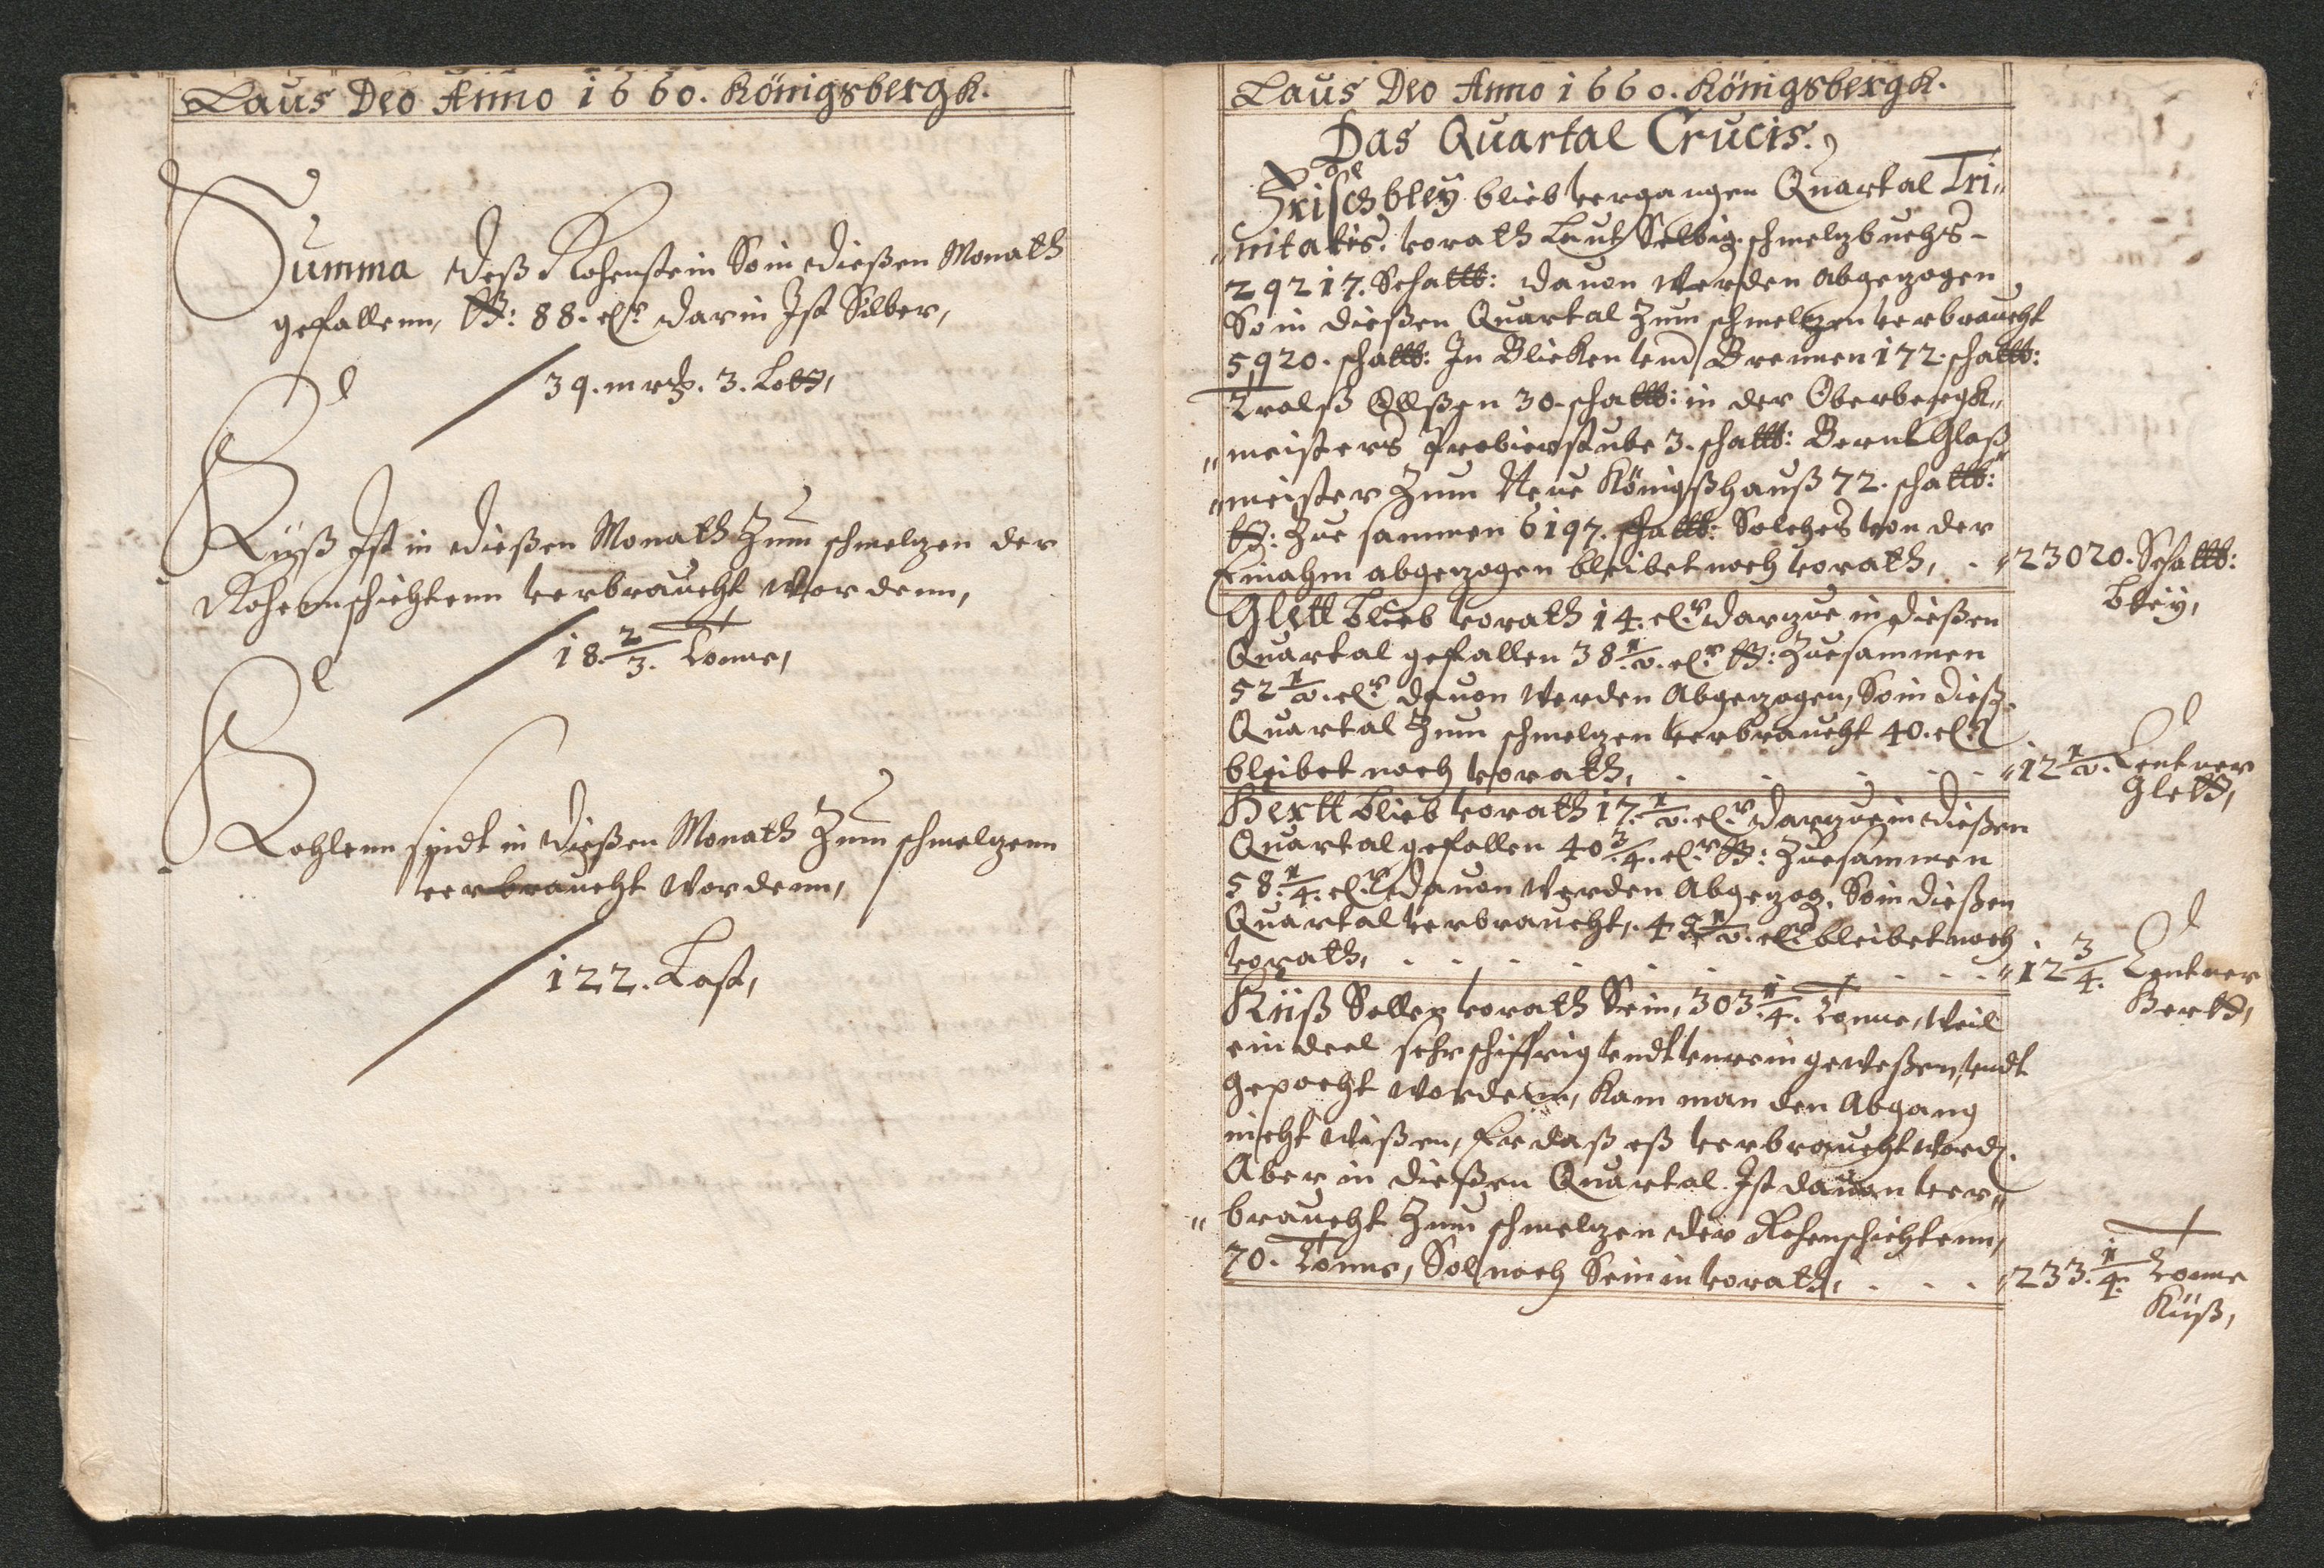 Laus Deo Anno 1660. Königsbergk.
Summa deß Rohenstein So in dießen Monath
gefallenn, ℔: 88. Ctr darin Ist Silber,
39. mrk. 3. Lott,
Küß Ist in dießen Monath Zum schmelzen der
Rohenschichtenn verbraucht wordenn,
18. 2/3. Tonne,
Kohlenn sindt in dießen Monath Zum schmelzenn
verbraucht wordenn,
122. Last,
Laus Deo Anno 1660. Königsbergk.
Das Quartal Crucis.
Frischbley blieb vergangen Quartal Tri„
„nitatis. vorath Laut Selbig. schmelzbuchs-
29217. Schattt: dauon werden abgezogen
So in dießen Quartal Zum schmeltzen verbraucht
5920. schattt: In Blicken vnd Brennen 172. schattt:
30. schattt: in der Oberbergk„
„meisters Probierstube 3. schattt: Bernt Glaß„
„meister Zum Neue Königßhauß 72. schattt:
Zue sammen 6197. schattt: Solches von der
Einahm abgezogen bleibet noch vorath, . „23020. Schattt:
Bley,
Glett blieb vorath 14. Ctr darzue in dießen
Quartal gefallen 38 1/2. Ctr Zuesammen
52 1/2. Ctr dauon werden Abgezogen, So in dieß.
Quartal Zum schmelzen verbraucht 40. Ctr
bleibet noch vorath, . . . . . „12 1/2. Centner
Glett,
Hertt blieb vorath 17. 1/2. Ctr darzue in dießen
Quartal gefallen 40 3/4. Ctr Zuesammen
58 1/4. Ctr dauon werden Abgezog. So in dießen
Quartal verbraucht, 45 1/2. Ctr bleibet noch
vorath, . . . . . . . . . „12 3/4. Centner
Hertt,
Küß Sollen vorath Sein, 303 1/4. Tonne, Weil
ein deel sehr schiffrig vndt vnrein geweßen, vndt
gepocht wordenn, Kann man den Abgang
nicht wißen, Er daß eß verbraucht word.
Aber in dießen Quartal Ist dauon ver„
„braucht Zum schmelzen der Rohenschichtenn,
70. Tonne, Sol noch Sein in vorath, . . . „233. 1/4. Tonne
Küß,